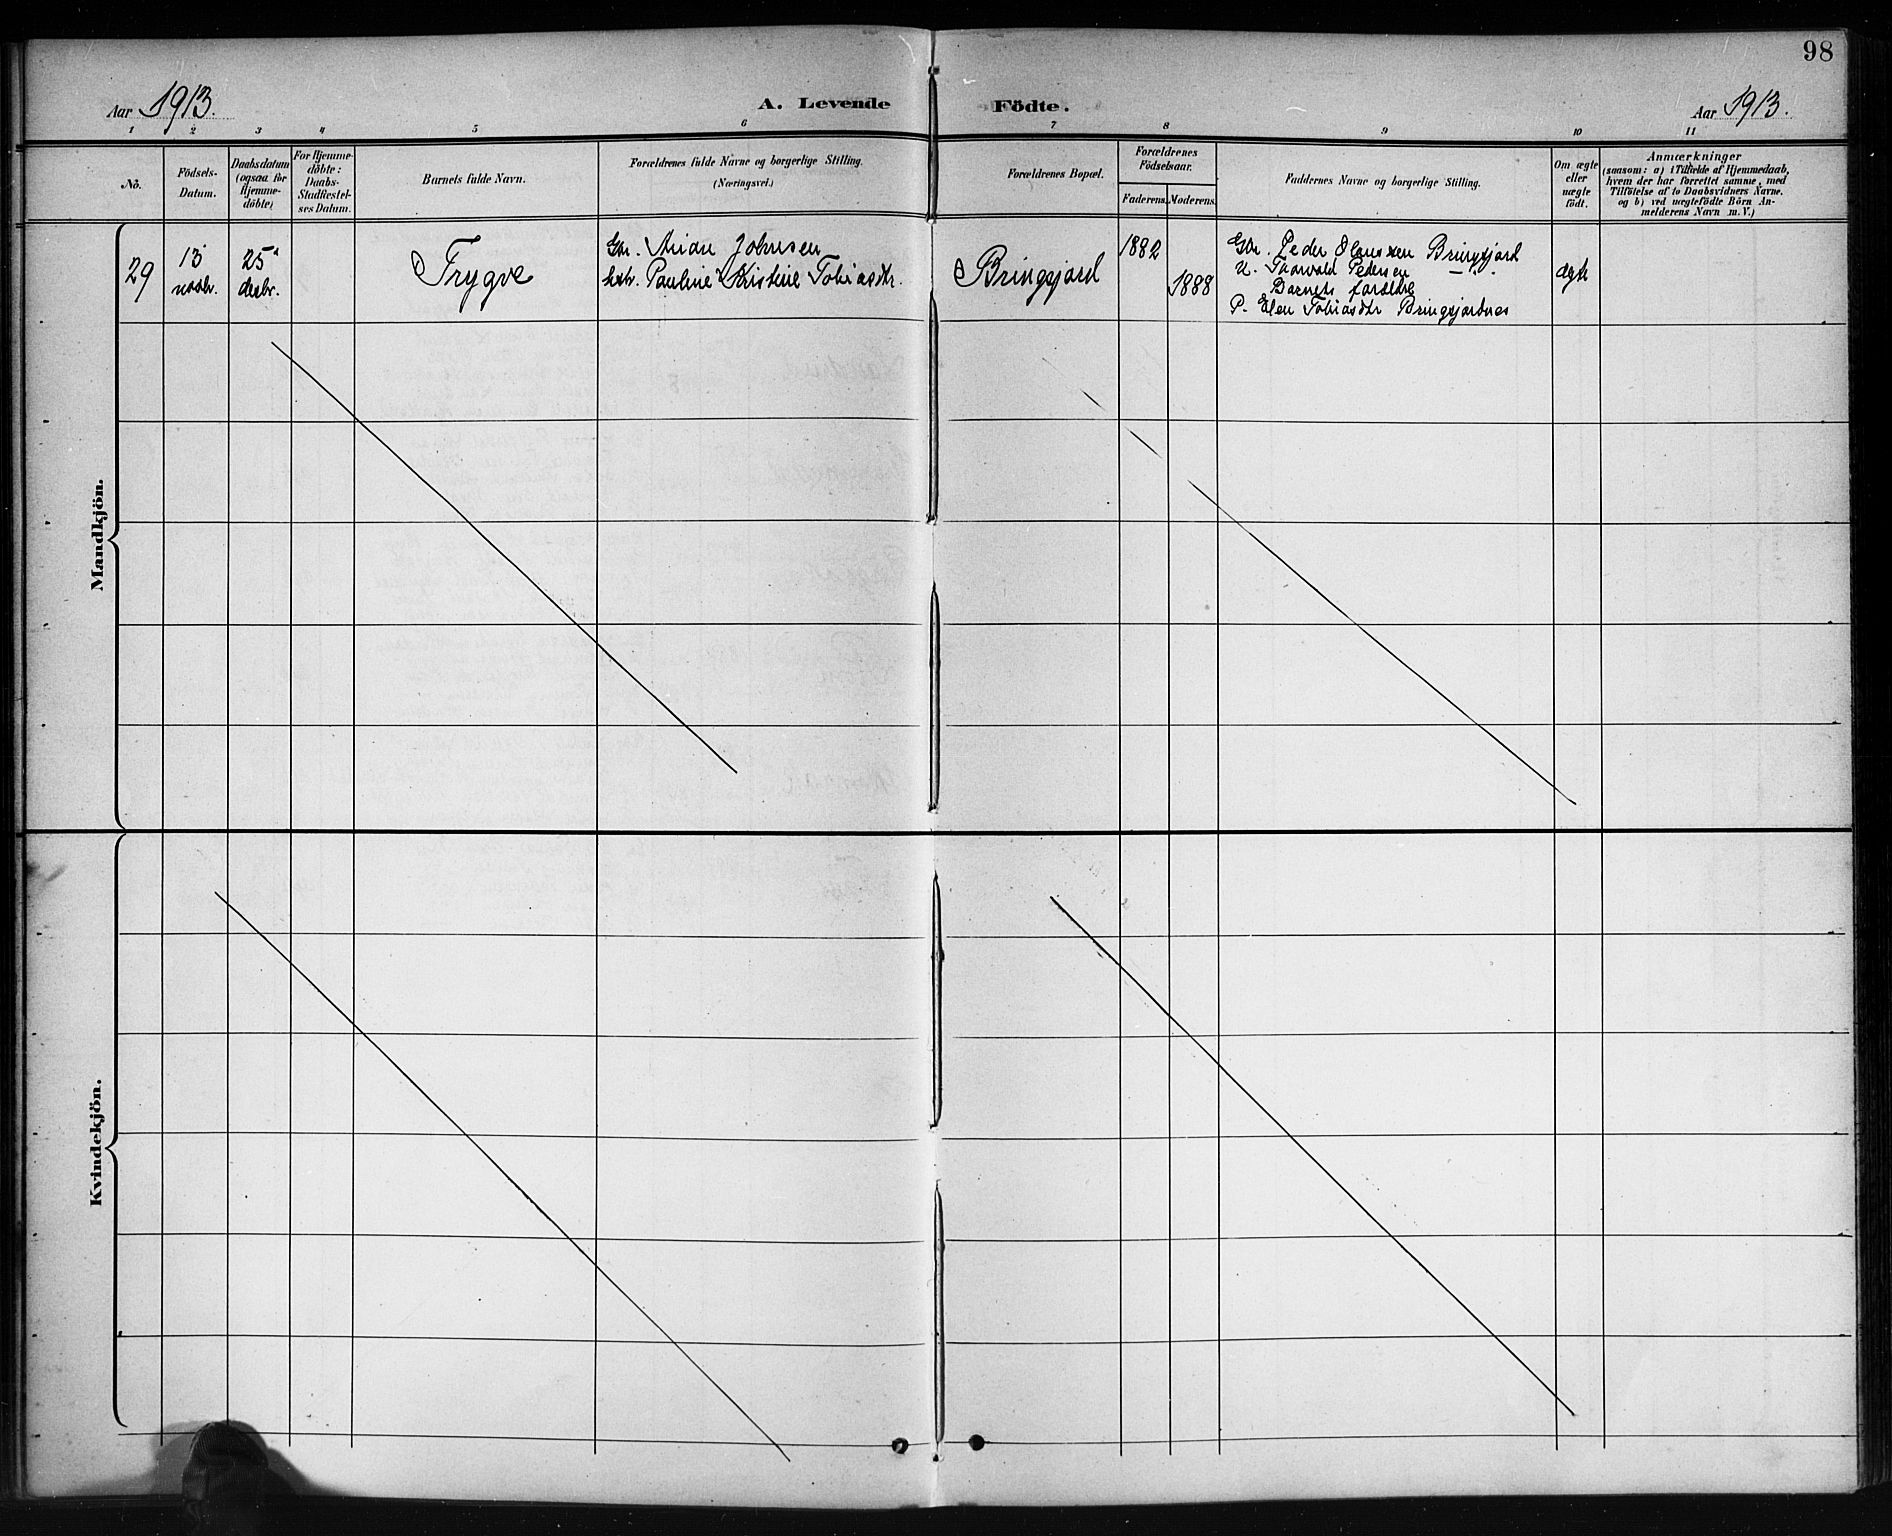 98
Aar 1913.
A. Levende Födte.
Aar 1913.
1 2 3 4 5 6 7 8 9 10 11
No.
Födsels-
Datum.
Daabsdatum
(ogsaa for
Hjemme-
döbte)
For Hjemme-
döbte:
Daabs-
Stadfæstel-
ses Datum.
Barnets fulde Navn.
Forældrenes fulde Navne og borgerlige Stilling.
(Næringsvei.)
Forældrenes Bopæl.
Forældrenes
Födselsaar.
Faderens. Moderens.
Faddernes Navne og borgerlige Stilling.
Om ægte
eller
uægte
födt.
Anmærkninger
(saasom: a) i Tilfælde af Hjemmedaab,
hvem der har forrettet samme, med
Tilföielse af to Daabsvidners Navne,
og b) ved uægtefödte Börn An-
melderens Navn m. V.)
Mandkjön.
29
13
novbr.
25
decbr.
Trygve
Gbr. Johnsen
Pauline Kristine Tobiasdtr.
Bringsjord
1882
1888
Gbr. Peder Olaussen Bringsjord
U. Thorvald Pedersen — " .
Barnets forældre
P. Elen Tobiasdtr Bringsjordnes
ægte
Kvindekjön.